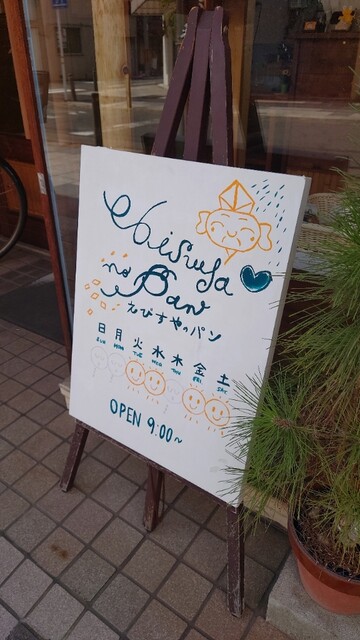 ebisuya
no Pan
えびすやのパン
日 月 火 水 木 金 土
SUN MON TUE WED THU FRI SAT
OPEN 9:00~